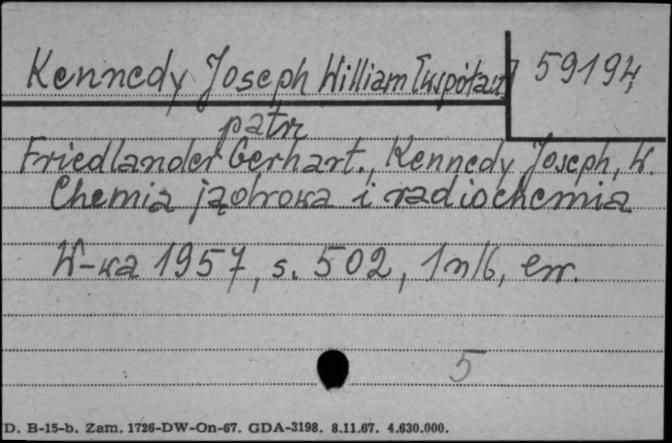 Kennedy Joseph William [współaut] 59194
patrz
Friedlander Gerhart., Kennedy Joseph, W.
Chemia jądrowa i radiochemia
W-wa 1957, s. 502, 1 nlb, err.
5
D. B-15-b. Zam. 1726-DW-On-67. GDA-3198. 8.11.67. 4.630.000.